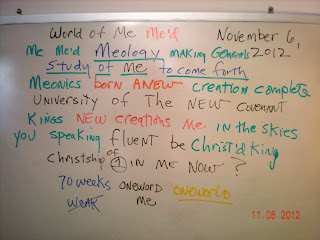 World of Me Me'd November 6,
Me Me'd Meology making Generls 2012
Study of Me to come forth
Meonics born ANEW creation complete
University of The New Covenant
Kings NEW creations Me in the skies
you speaking fluent be Christ'd King
Christship of 1 IN ME NOW ?
70 weeks oneword oneworld
weak me
11.06.2012